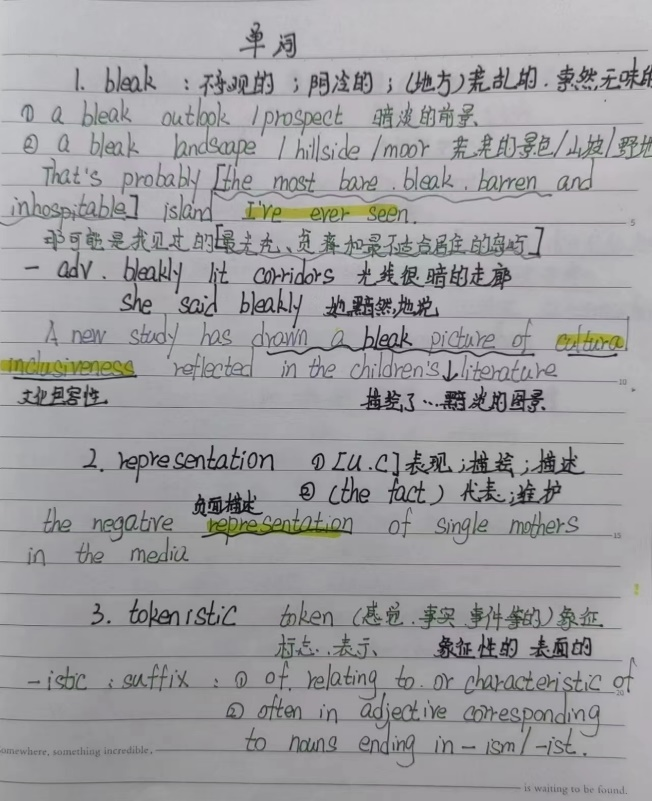 单词
1. bleak : 不乐观的 ; 阴冷的 ; (地方) 荒乱的. 索然无味的
① a bleak outlook / prospect 暗淡的前景
② a bleak landscape / hillside / moor 荒芜的景色/山坡/野地
That's probably [the most bare. bleak. barren and
inhospitable] island I've ever seen.
那可能是我见过的[最光秃、贫瘠和最不适合居住的岛屿]
— adv. bleakly lit corridors 光线很暗的走廊
She said bleakly 她黯然地说
A new study has drawn a bleak picture of cultural
inclusiveness reflected in the children's literature
文化包容性 描绘了…黯淡的图景
2. representation ① [U.C] 表现 ; 描绘 ; 描述
② (the fact) 代表 ; 维护
负面描述
the negative representation of single mothers
in the media
3. tokenistic token (感觉. 事实 事件等的) 象征
标志. 表示. 象征性的 表面的
-istic : suffix : ① of. relating to. or characteristic of
② often in adjective corresponding
to nouns ending in -ism / -ist.
omewhere, something incredible,
is waiting to be found.